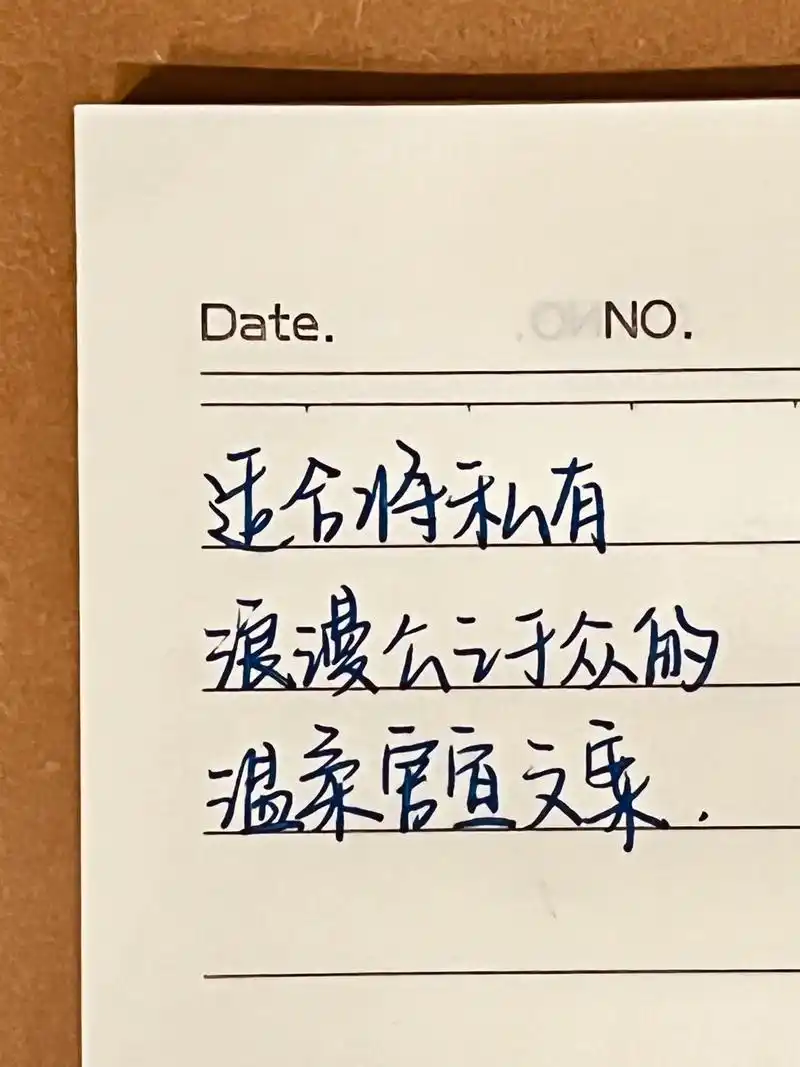 Date. NO.
适合将私有
浪漫公之于众的
温柔官宣文案.